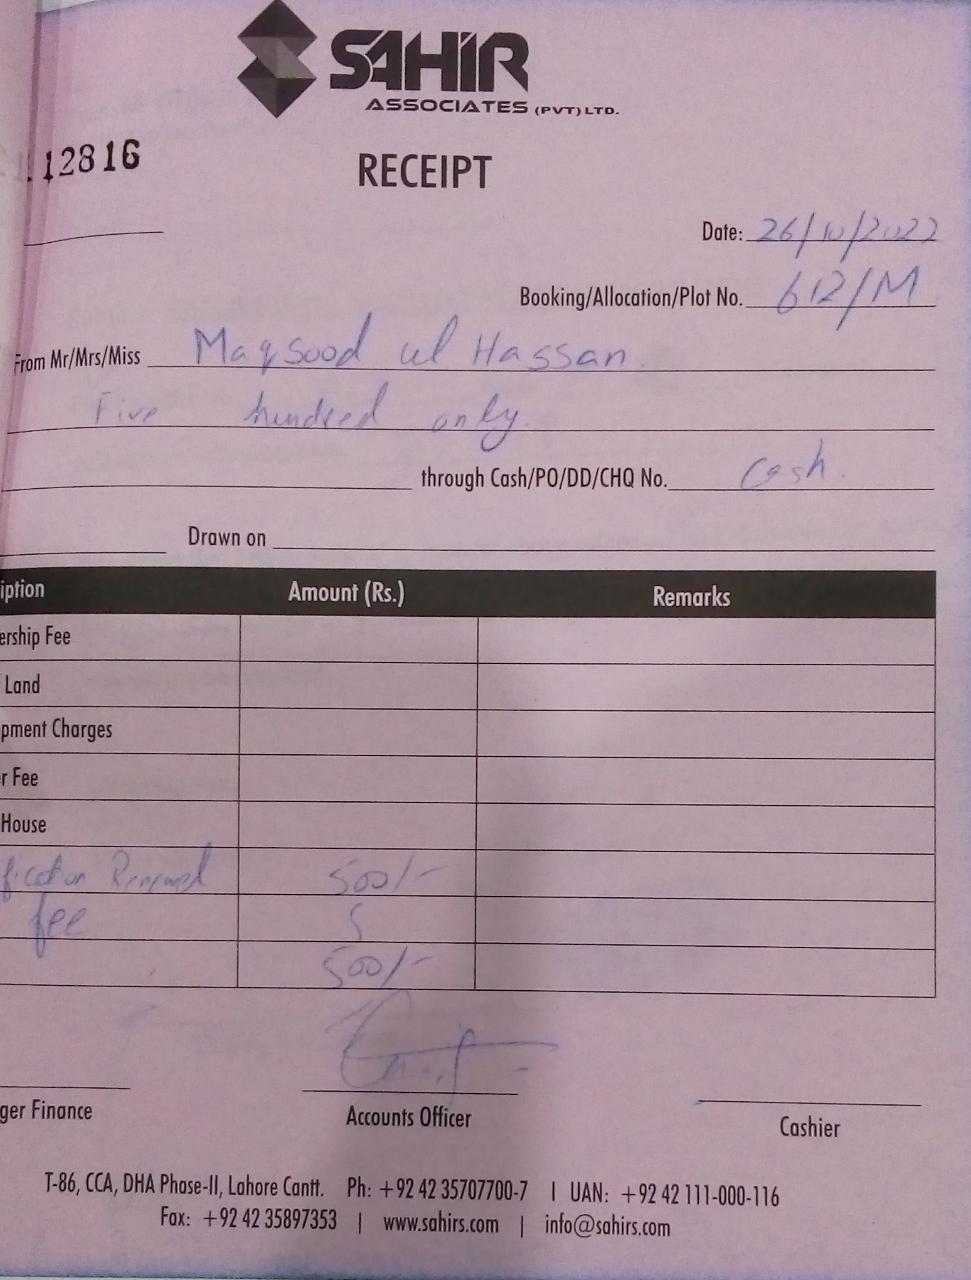 SAHIR
ASSOCIATES (PVT) LTD.
12816
RECEIPT
Date: 26/10/2022
Booking/Allocation/Plot No. 612/M
From Mr/Mrs/Miss Maqsood ul Hassan
Five hundred only
through Cash/PO/DD/CHQ No. Cash
Drawn on
iption Amount (Rs.) Remarks
ership Fee
Land
pment Charges
r Fee
House
fication Renewal 500/-
fee
500/-
ger Finance Accounts Officer Cashier
T-86, CCA, DHA Phase-II, Lahore Cantt. Ph: +92 42 35707700-7 | UAN: +92 42 111-000-116
Fax: +92 42 35897353 | www.sahirs.com | info@sahirs.com